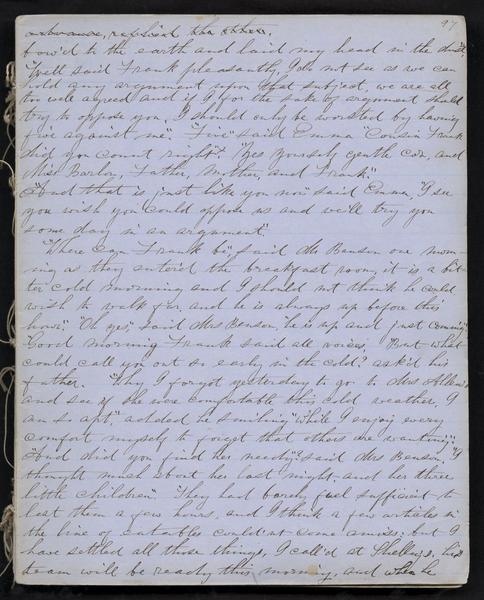 97
ordinance, replied the other.
bow'd to the earth and laid my head in the dust."
"Well said Frank pleasantly, I do not see as we can
hold any argument upon that subject, we are all
too well agreed and if I for the sake of argument should
try to oppose you, I should only be worsted by having
five against me". "Five" said Emma "Cousin Frank
did you count right"? "Yes yourself gentle coz, and
Miss Barlow, Father, Mother, and Frank."
"And that is just like you now" said Emma, "I see
you wish you could oppose us and we'll try you
some day in an argument".
"Where can Frank be", said Mr Benson one morn-
ing as they enter'd the breakfast room, it is a bit-
ter cold morning and I should not think he would
wish to walk far, and he is always up before this
hour." "Oh yes" said Mrs Benson, "he is up and just coming"
Good morning Frank said all voices. But what
could call you out so early in the cold? ask'd his
father. "Why I forgot yesterday to go to Mrs
and see if she were comfortable this cold weather, I
am so apt", added he smiling "while I enjoy every
comfort myself to forget that others are wanting".
"And did you find her needy? said Mrs Benson, "I
thought much about her last night, and her three
little children". They had barely fuel sufficient to
last them a few hours, and I think a few articles in
the line of eatables could'nt come amiss; but I
have settled all those things, I call'd at his
team will be ready this morning, and when he